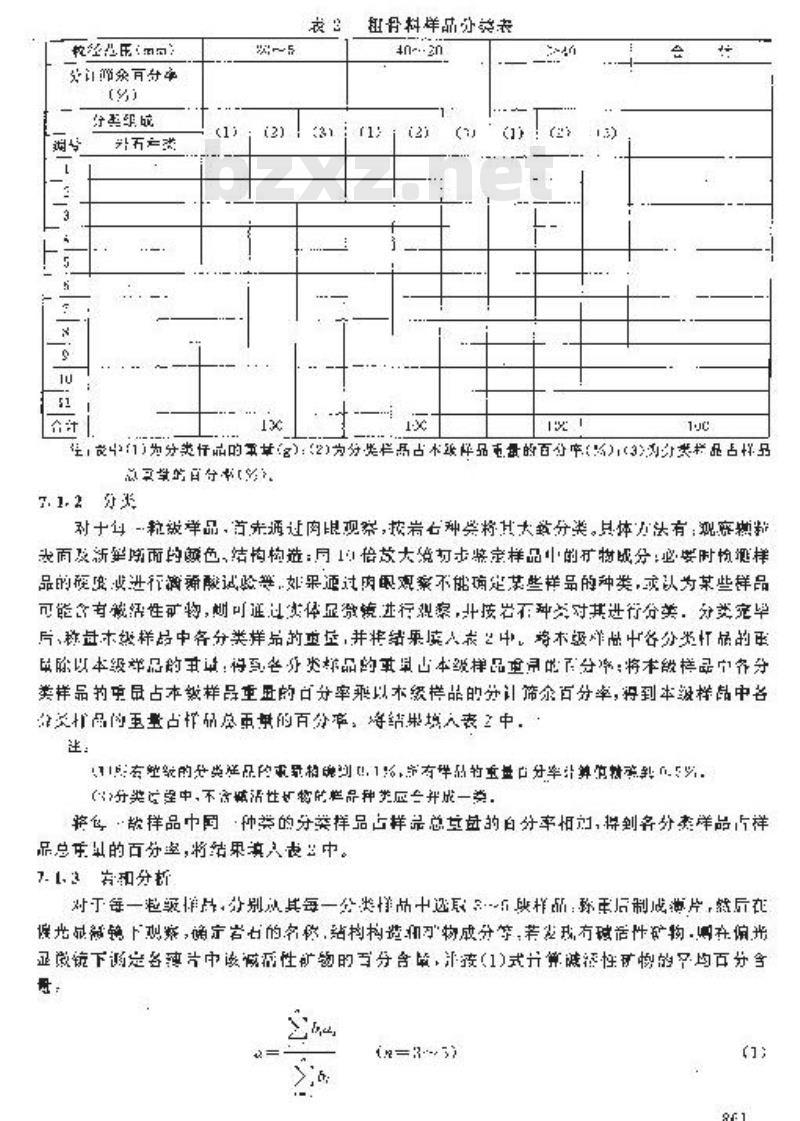 表 2 粗骨料样品分类表
粒径范围(mm) 20~5 40~20 >40 合 计
分计筛余百分率
(%)
分类组成
(1) (2) (3) (1) (2) (3) (1) (2) (3)
编号 岩石种类
1
2
3
4
5
6
7
8
9
10
11
合计 100 100 100 100
bzxz.net
注:表中(1)为分类样品的重量(g);(2)为分类样品占本级样品重量的百分率(%);(3)为分类样品占样品
总重量的百分率(%)。
7.1.2 分类
对于每一粒级样品,首先通过肉眼观察,按岩石种类将其大致分类。具体方法有:观察颗粒
表面及新鲜断面的颜色、结构构造;用10倍放大镜初步鉴定样品中的矿物成分;必要时检验样
品的硬度或进行滴稀酸试验等。如果通过肉眼观察不能确定某些样品的种类,或认为某些样品
可能含有碱活性矿物,则可通过实体显微镜进行观察,并按岩石种类对其进行分类。分类完毕
后,称量本级样品中各分类样品的重量,并将结果填入表2中。将本级样品中各分类样品的重
量除以本级样品的重量,得到各分类样品的重量占本级样品重量的百分率;将本级样品中各分
类样品的重量占本级样品重量的百分率乘以本级样品的分计筛余百分率,得到本级样品中各
分类样品的重量占样品总重量的百分率。将结果填入表2中。
注:
(1)所有粒级的分类样品的重量精确到0.1%,所有样品的重量百分率计算值精确到0.5%。
(2)分类过程中,不含碱活性矿物的样品种类应合并成一类。
将每一级样品中同一种类的分类样品占样品总重量的百分率相加,得到各分类样品占样
品总重量的百分率,将结果填入表2中。
7.1.3 岩相分析
对于每一粒级样品,分别从其每一分类样品中选取3~5块样品,称重后制成薄片,然后在
偏光显微镜下观察,确定岩石的名称、结构构造和矿物成分等,若发现有碱活性矿物,则在偏光
显微镜下测定各薄片中该碱活性矿物的百分含量,并按(1)式计算碱活性矿物的平均百分含
量:
a=∑bᵢaᵢ/∑bᵢ (n=3~5) (1)
861